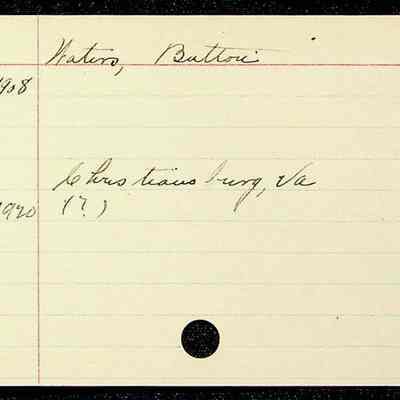 Waters, Button
1908
Christiansburg, Va
1920 (?)